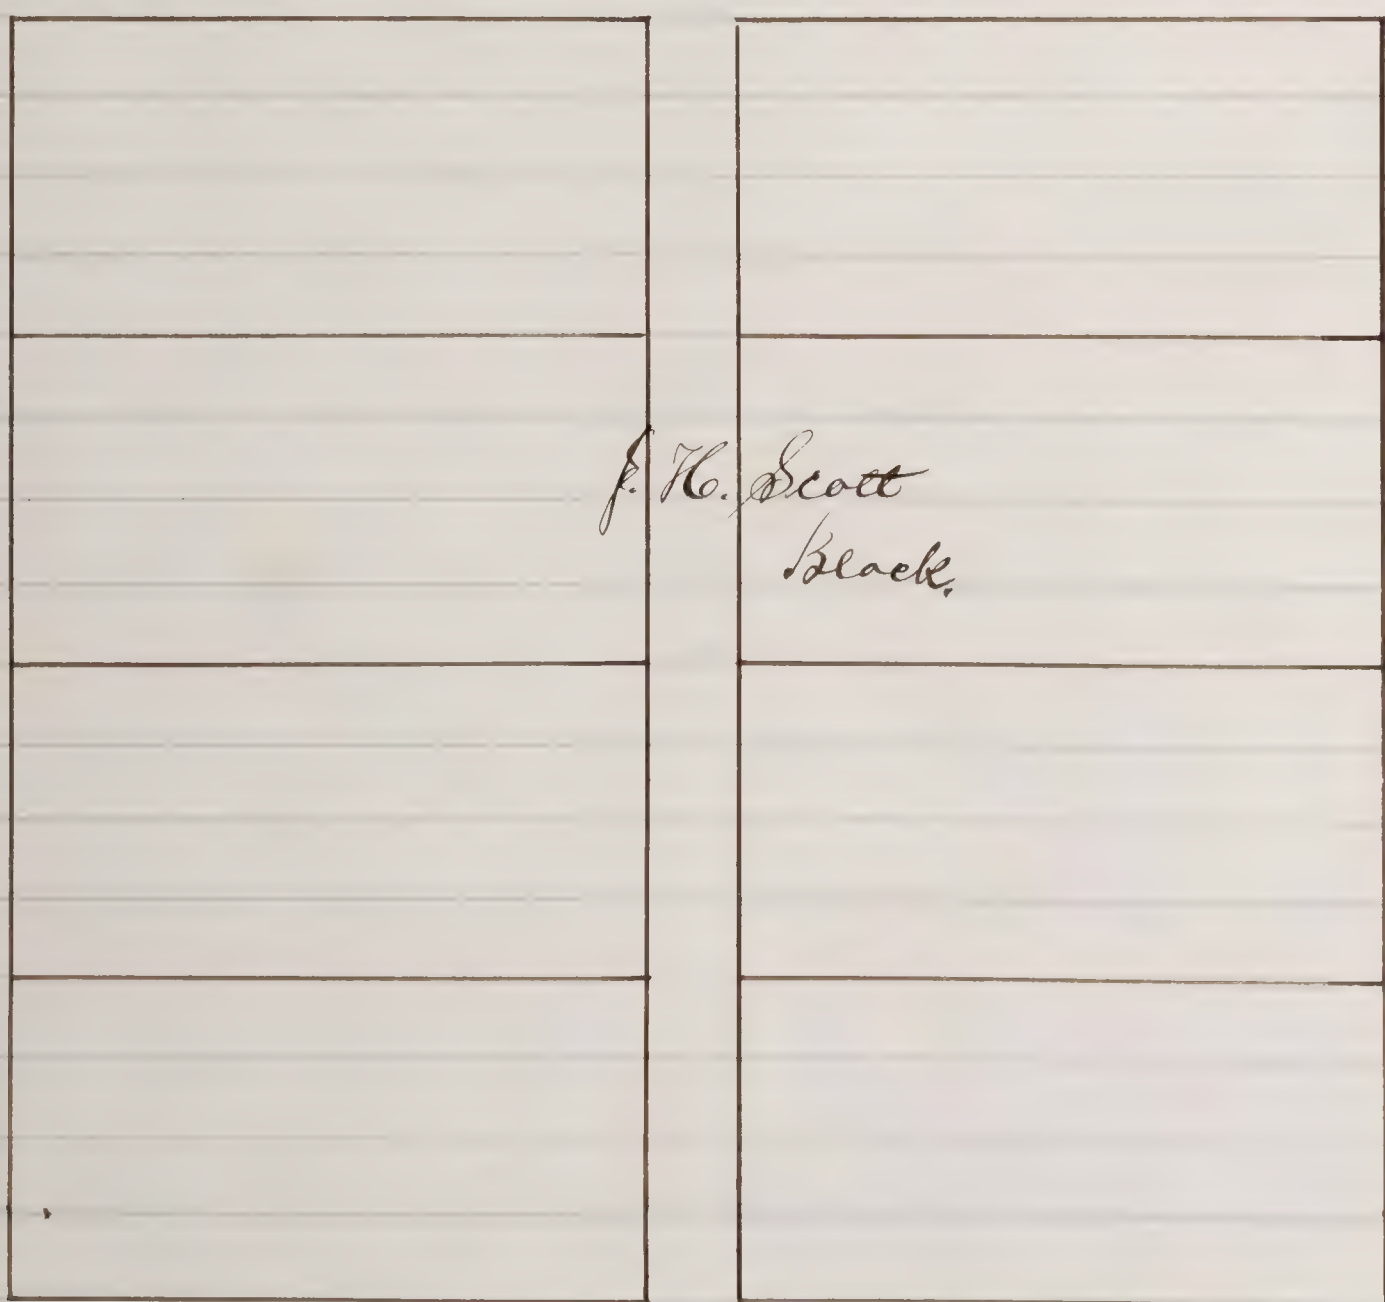 J. H. Scott
Black.